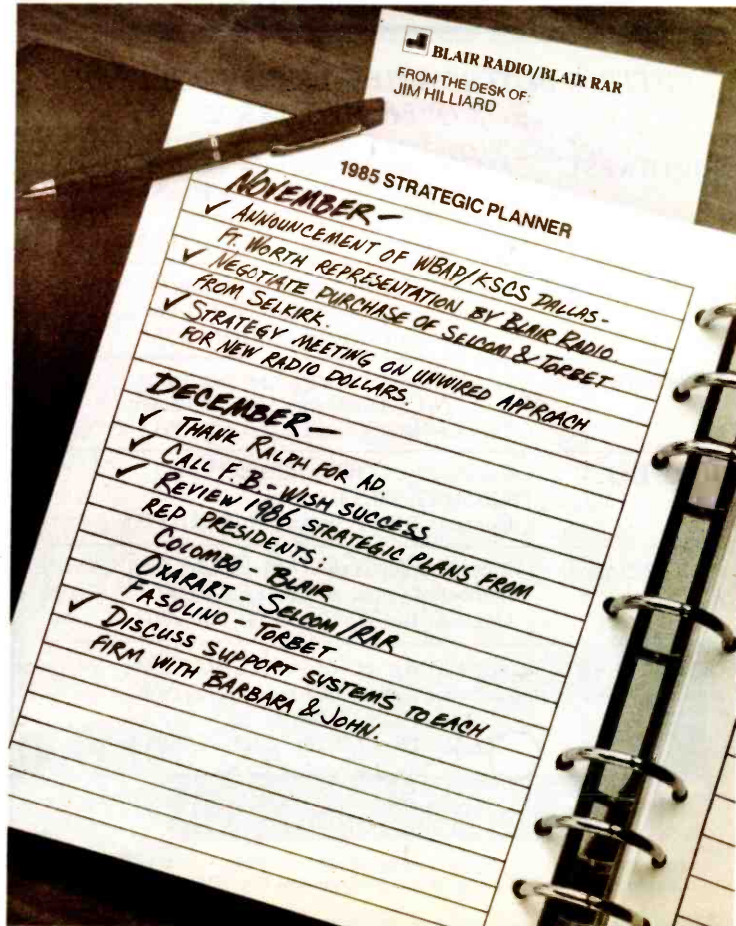 BLAIR RADIO/BLAIR RAR
FROM THE DESK OF:
JIM HILLIARD
1985 STRATEGIC PLANNER
NOVEMBER-
✓ ANNOUNCEMENT OF WBAP/KSCS DALLAS-
FT. WORTH REPRESENTATION BY BLAIR RADIO.
✓ NEGOTIATE PURCHASE OF SELCOM & TORBET
FROM SELKIRK.
✓ STRATEGY MEETING ON UNWIRED APPROACH
FOR NEW RADIO DOLLARS.
DECEMBER-
✓ THANK RALPH FOR AD.
✓ CALL F.B.-WISH SUCCESS
✓ REVIEW 1986 STRATEGIC PLANS FROM
REP PRESIDENTS:
COLOMBO-BLAIR
OXARART-SELCOM/RAR
FASOLINO-TORBET
✓ DISCUSS SUPPORT SYSTEMS TO EACH
FIRM WITH BARBARA & JOHN.